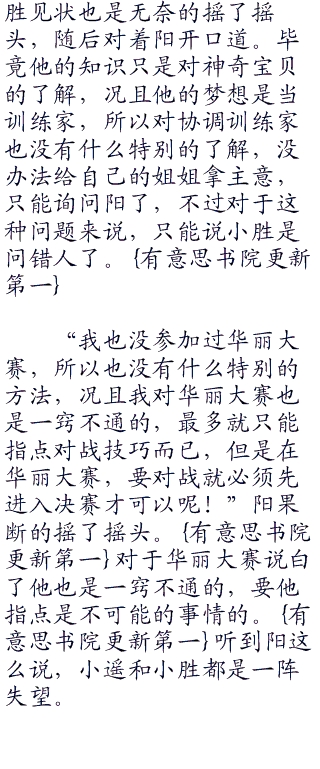 胜见状也是无奈的摇了摇
头，随后对着阳开口道。毕
竟他的知识只是对神奇宝贝
的了解，况且他的梦想是当
训练家，所以对协调训练家
也没有什么特别的了解，没
办法给自己的姐姐拿主意，
只能询问阳了，不过对于这
种问题来说，只能说小胜是
问错人了。{有意思书院更新
第一}
“我也没参加过华丽大
赛，所以也没有什么特别的
方法，况且我对华丽大赛也
是一窍不通的，最多就只能
指点对战技巧而已，但是在
华丽大赛，要对战就必须先
进入决赛才可以呢！”阳果
断的摇了摇头。{有意思书院
更新第一}对于华丽大赛说白
了他也是一窍不通的，要他
指点是不可能的事情的。{有
意思书院更新第一}听到阳这
么说，小遥和小胜都是一阵
失望。